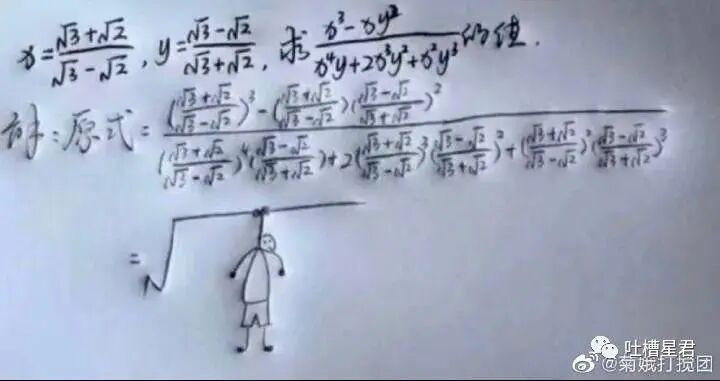 x=(√3+√2)/(√3-√2), y=(√3-√2)/(√3+√2), 求(x³-xy²)/(x⁴y+2x³y²+x²y³)的值.
解:原式=(((√3+√2)/(√3-√2))³-((√3+√2)/(√3-√2))((√3-√2)/(√3+√2))²)/(((√3+√2)/(√3-√2))⁴((√3-√2)/(√3+√2))+2((√3+√2)/(√3-√2))³((√3-√2)/(√3+√2))²+((√3+√2)/(√3-√2))²((√3-√2)/(√3+√2))³)
=√
吐槽星君
@菊娥打搅团